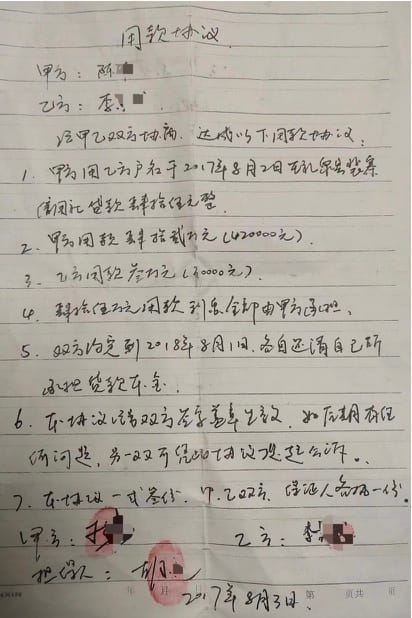 用款协议
甲方：陈
乙方：李
经甲乙双方协商，达成以下用款协议：
1、甲方用乙方户名于2017年8月2日在
信用社贷款肆拾伍元整
2、甲方用款肆拾贰万元（420000元）．
3、乙方用款叁万元（30000元）
4、肆拾伍万元用款利息全部由甲方承担．
5、双方约定到2018年8月1日，各自还清自己所
承担贷款本金．
6、本协议经双方签字盖章生效，如后期有任
何问题，另一双可凭此协议提起公诉．
7、本协议一式叁份，甲．乙双方，保证人各执一份．
甲方：
乙方：李
担保人：
年 月 日
第 页共 页
2017年8月3日．